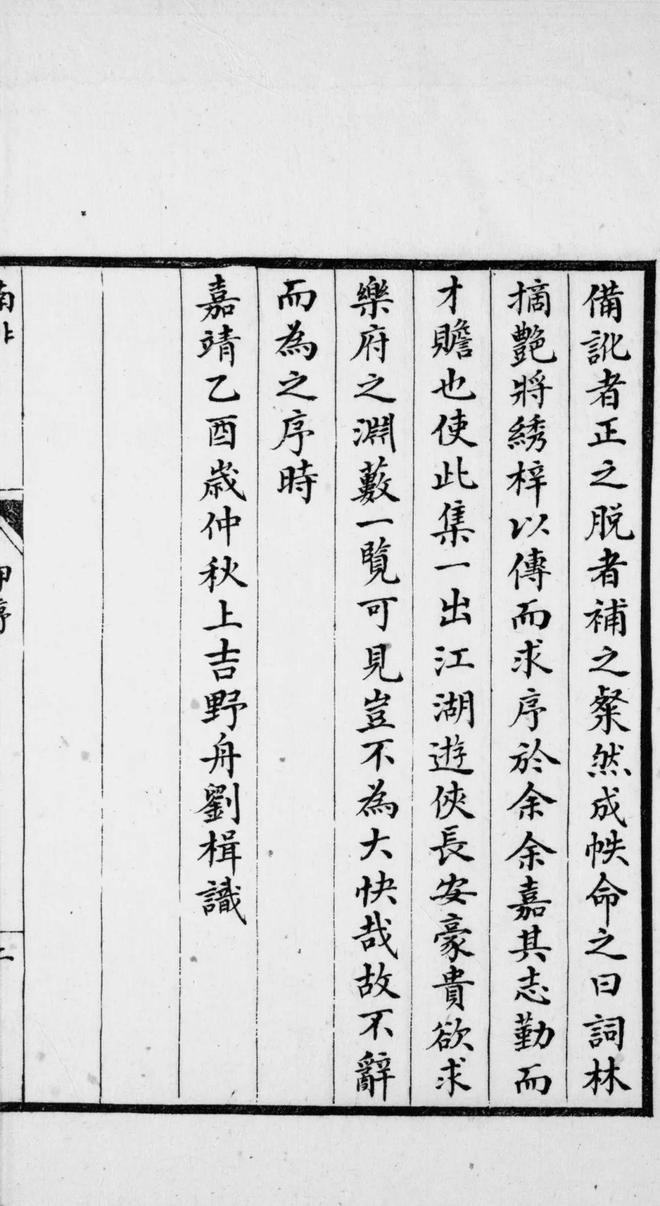 備訛者正之脱者補之粲然成帙命之曰詞林
摘艷將綉梓以傳而求序於余余嘉其志勤而
才贍也使此集一出江湖遊俠長安豪貴欲求
樂府之淵藪一覧可見豈不為大快哉故不辭
而為之序時
嘉靖乙酉歲仲秋上吉野舟劉楫識